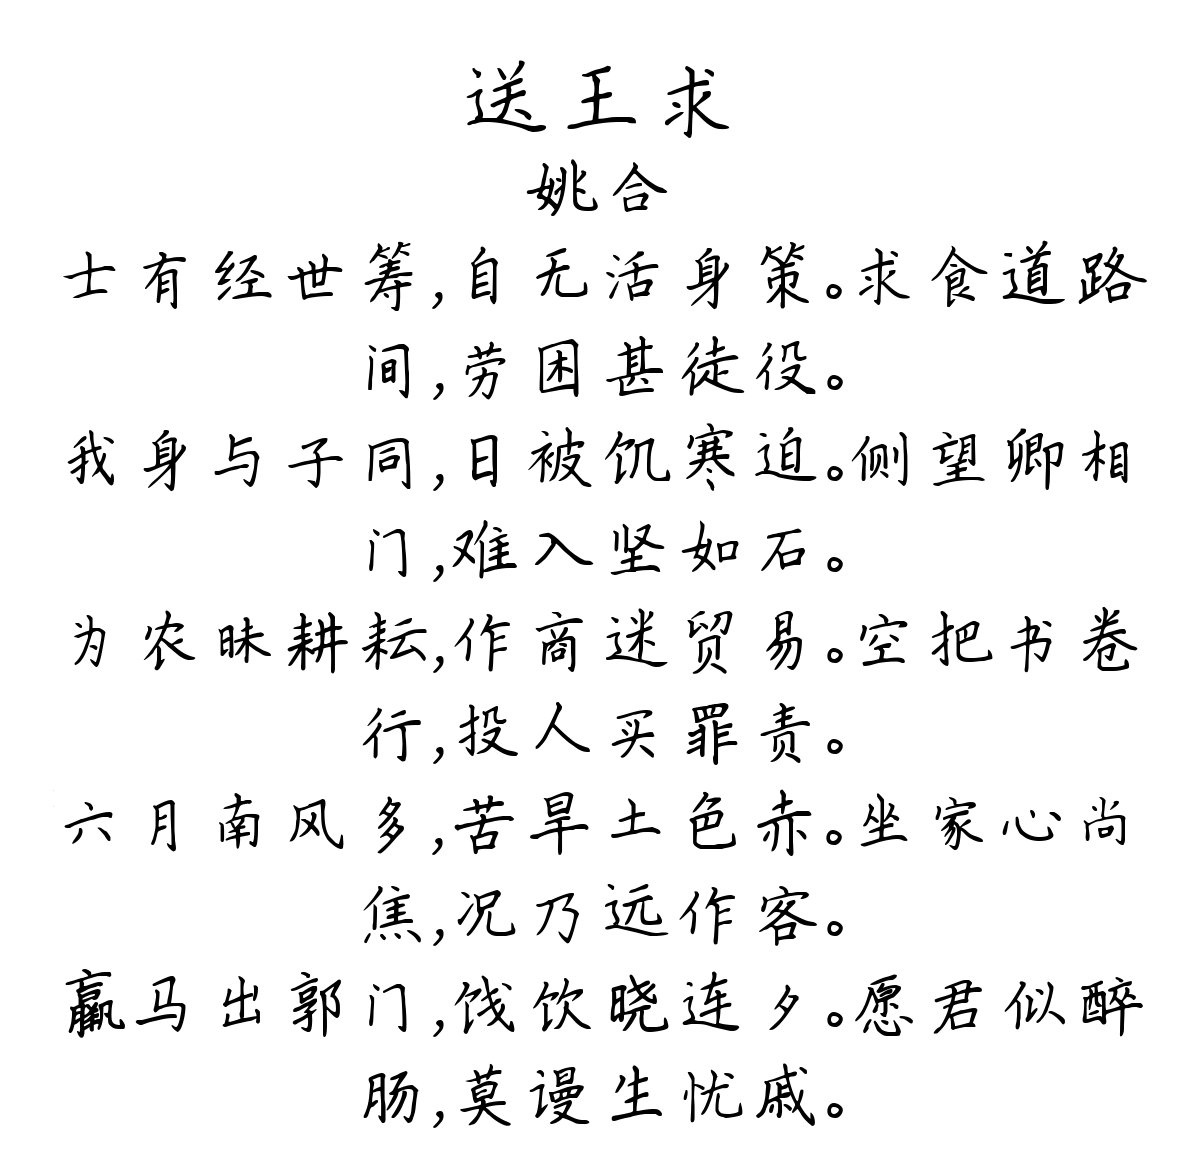 送王求
姚合
士有经世筹,自无活身策。求食道路
间,劳困甚徒役。
我身与子同,日被饥寒迫。侧望卿相
门,难入坚如石。
为农昧耕耘,作商迷贸易。空把书卷
行,投人买罪责。
六月南风多,苦旱土色赤。坐家心尚
焦,况乃远作客。
羸马出郭门,饯饮晓连夕。愿君似醉
肠,莫谩生忧戚。